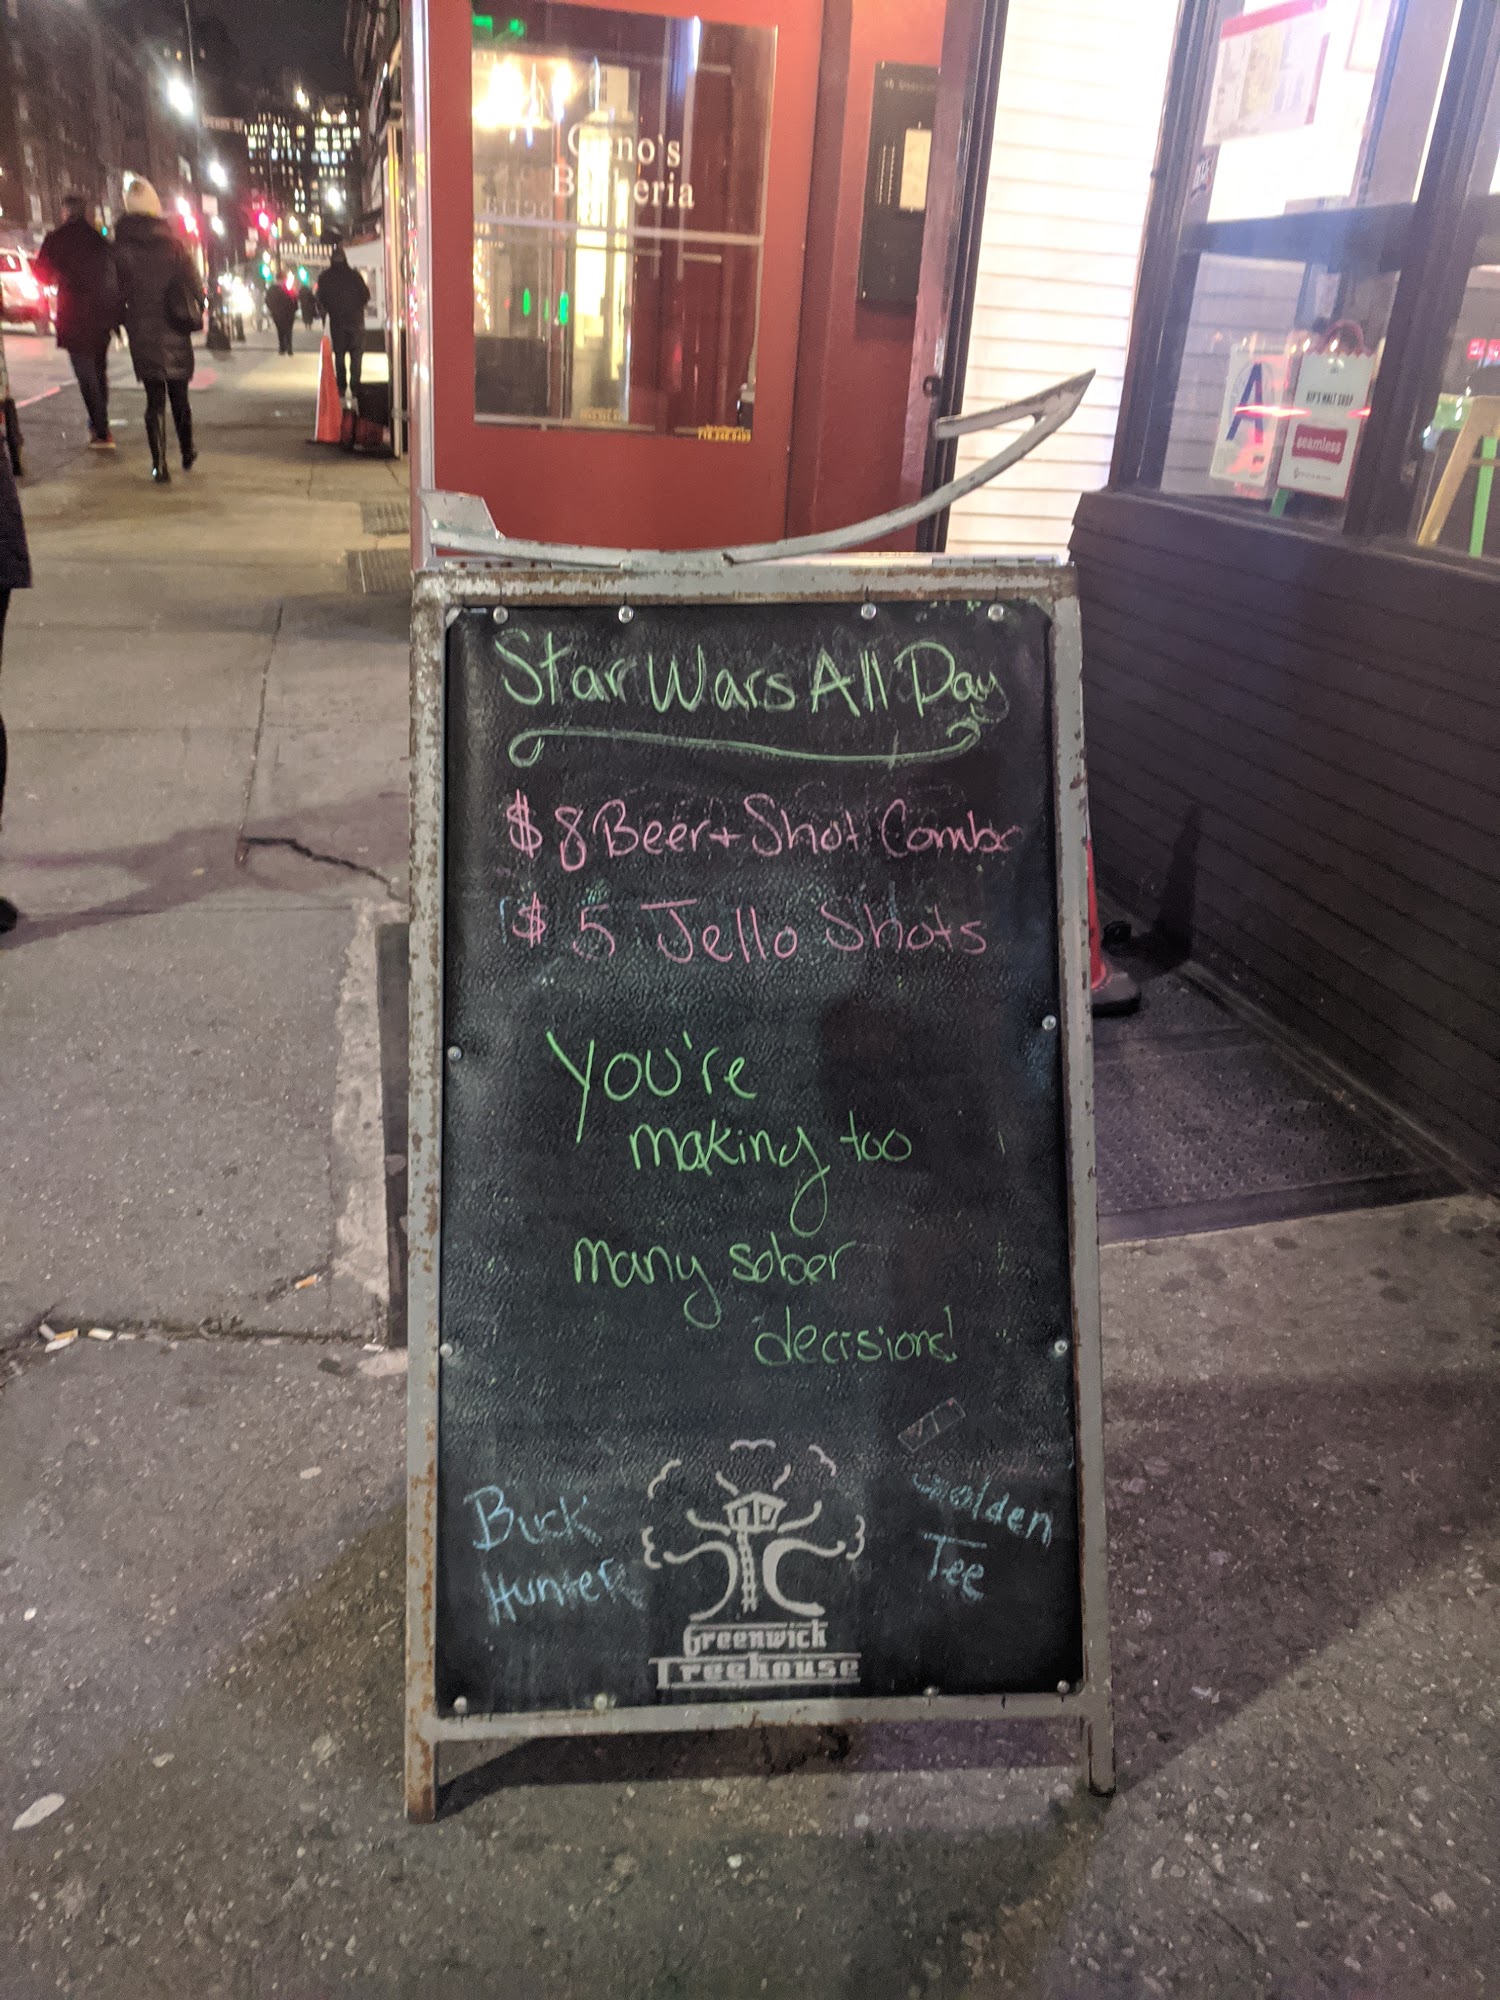 Star Wars All Day
$8 Beer + Shot Combo
$5 Jello Shots
You're
making too
many sober
decisions!
Buck
Hunter
Golden
Tee
Greenwich
Treehouse
A
KIP'S MALT SHOP
seamless